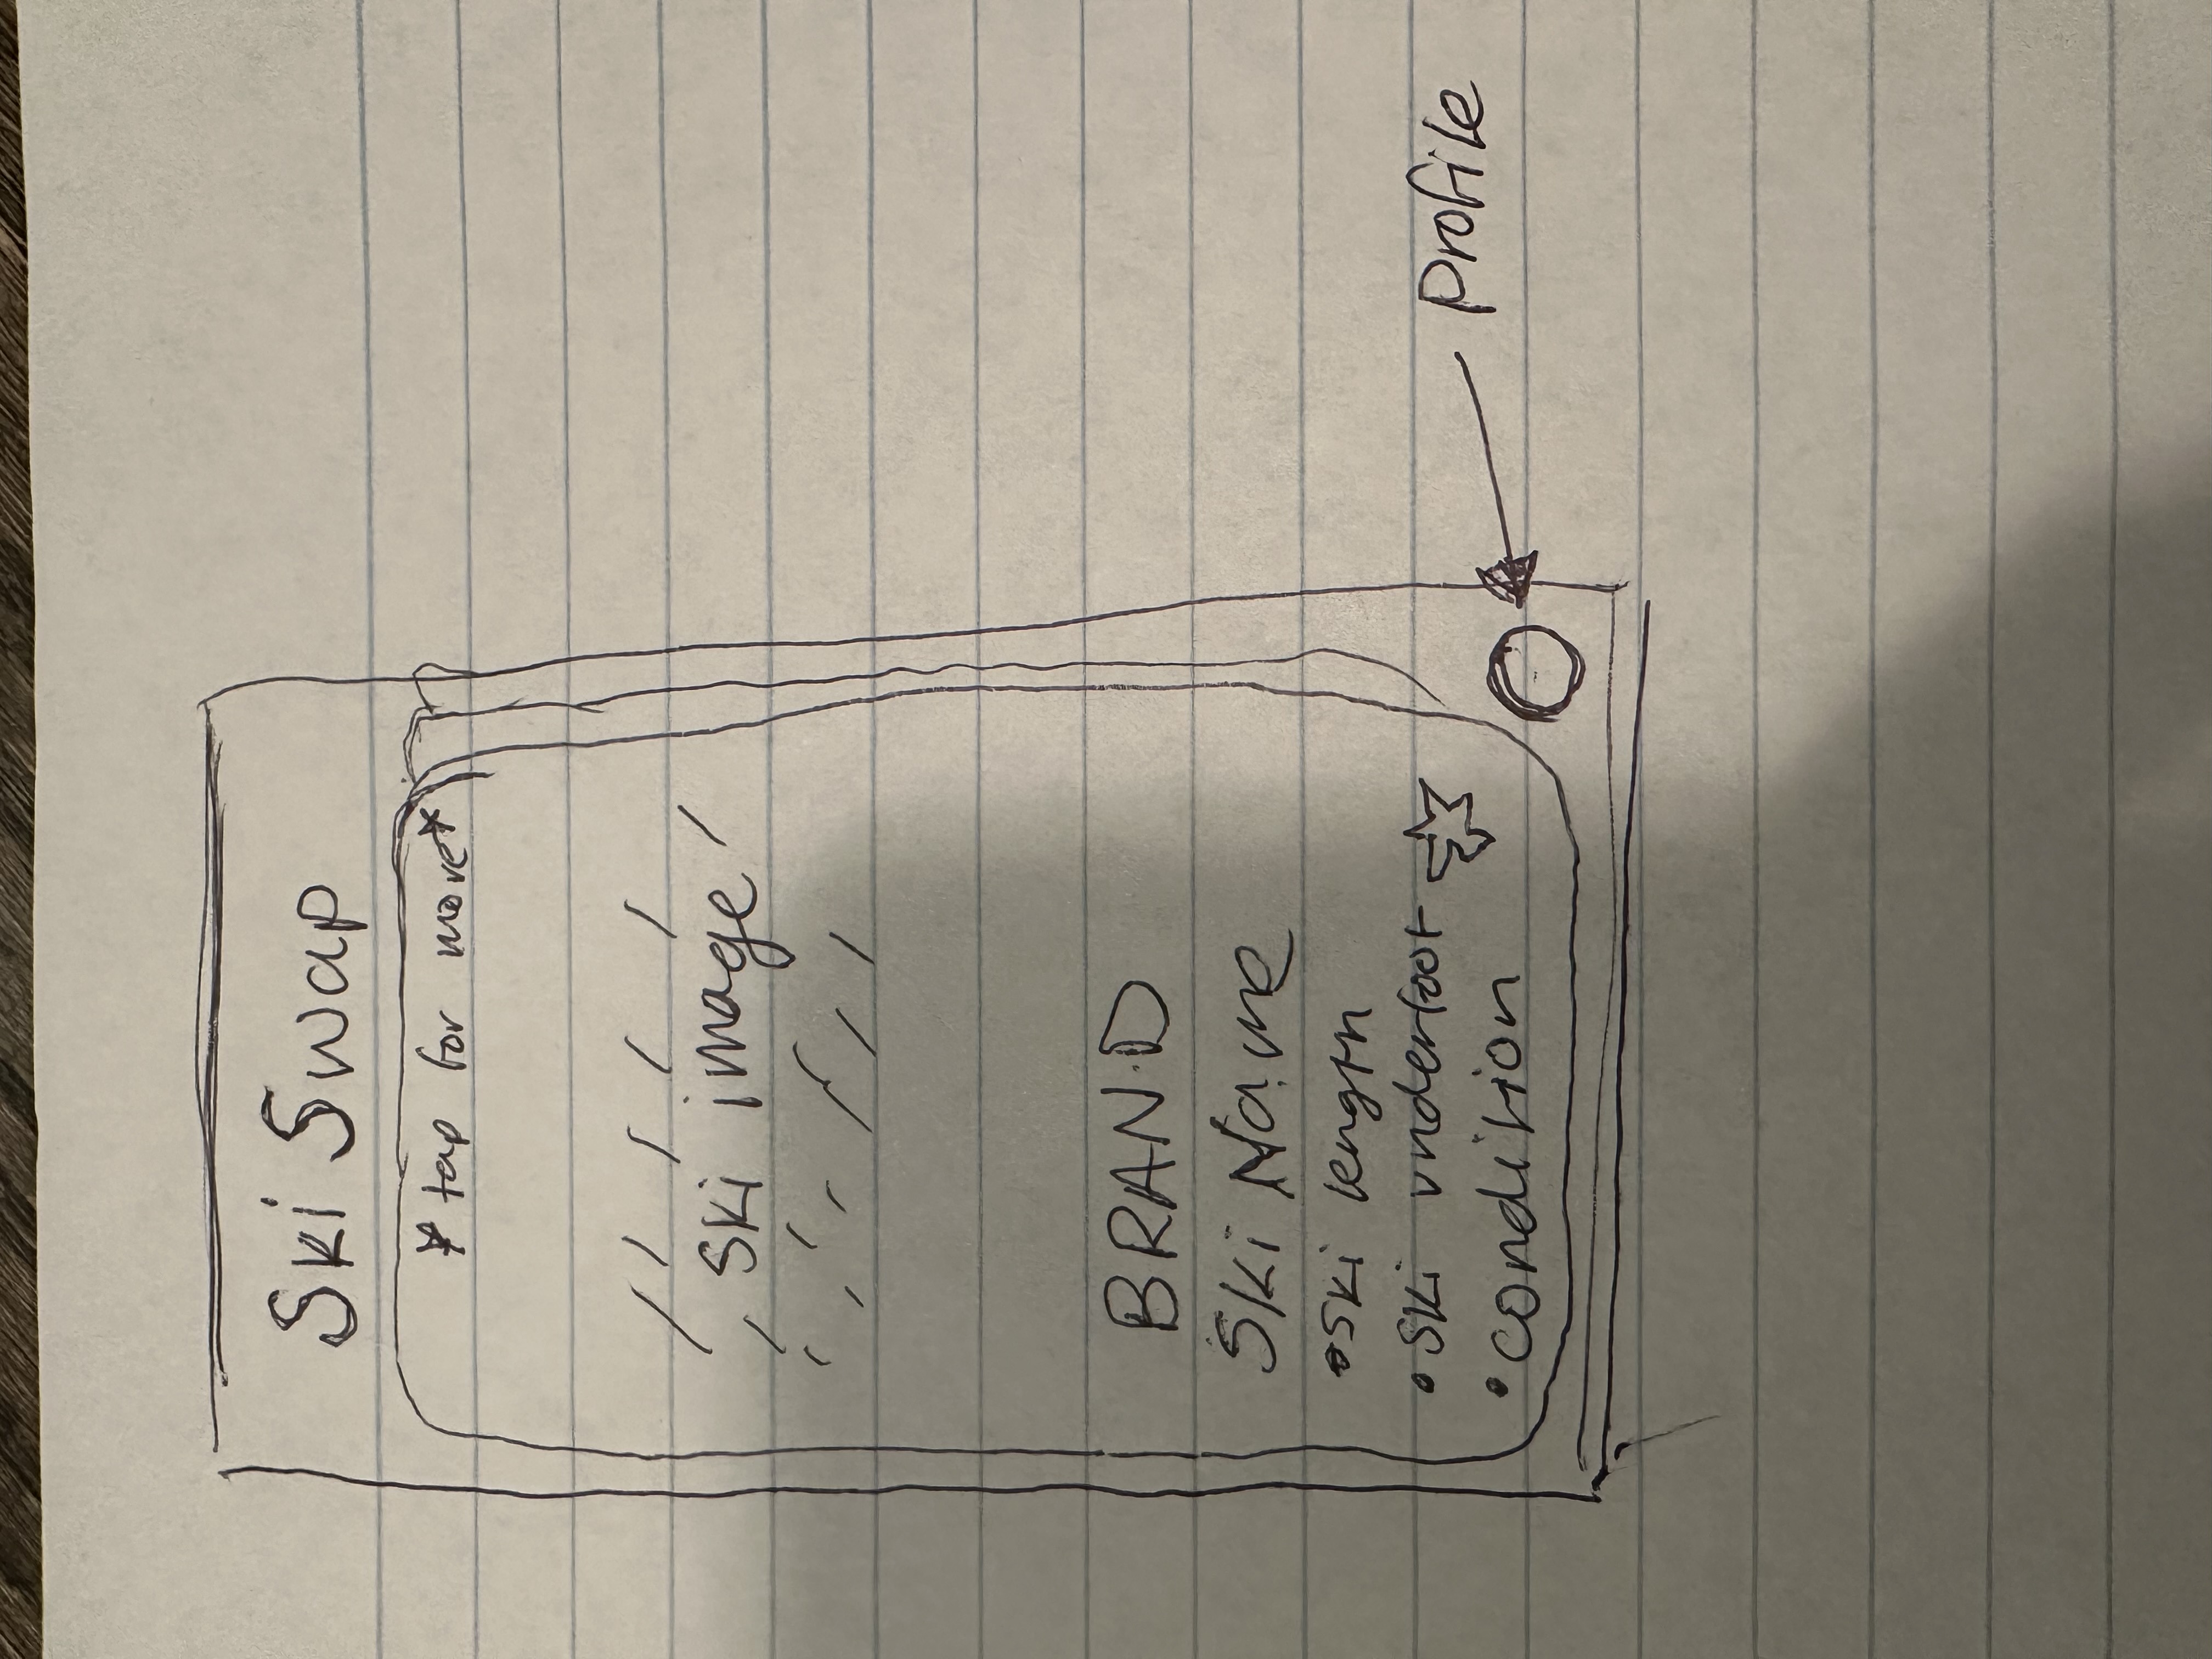 Ski Swap
* tap for more *
ski image
BRAND
Ski Name
• ski length
• ski underfoot
• condition
Profile